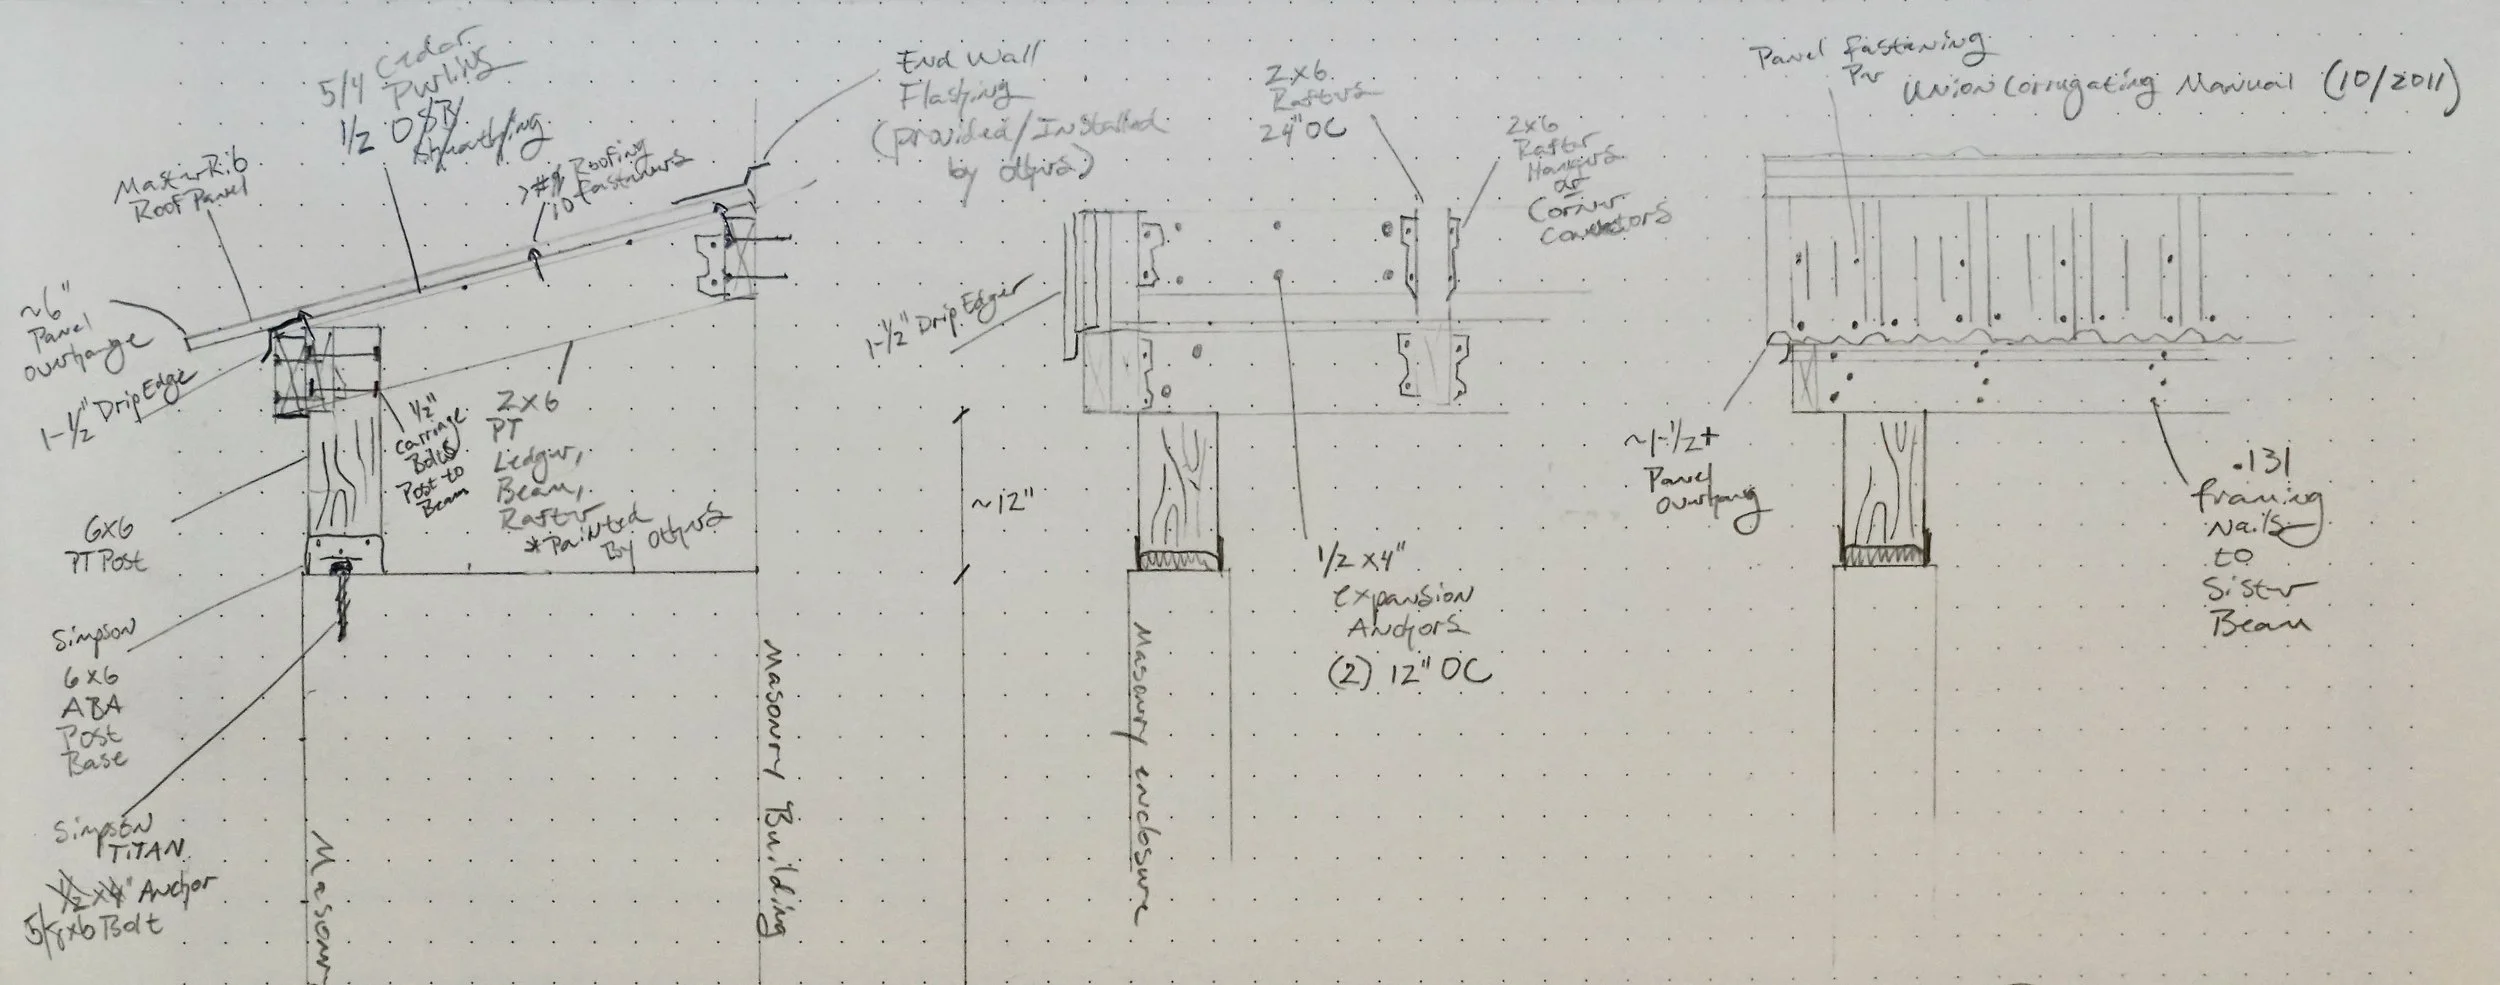 5/4 Cedar
Purlins
1/2 OSB/
Sheathing
MasterRib
Roof Panel
>#9 Roofing
10 fasteners
End Wall
Flashing
(Provided/Installed
by others)
~6"
Panel
overhange
1-1/2" Drip Edge
1/2"
Carriage
Bolts
Post to
Beam
2x6
PT
Ledger,
Beam,
Rafter
*Painted
By Others
6x6
PT Post
Simpson
6x6
ABA
Post
Base
Simpson
TITAN
1/2 x4" Anchor
5/8x6 Bolt
Masonry
Masonry Building
2x6
Rafters
24" OC
2x6
Rafter
Hangers
or
Corner
Connectors
1-1/2" Drip Edge
~12"
1/2 x4"
expansion
Anchors
(2) 12" OC
Masonry enclosure
Panel fastening
Per Union Corrugating Manual (10/2011)
~1-1/2+
Panel
overhang
.131
framing
Nails
to
Sister
Beam